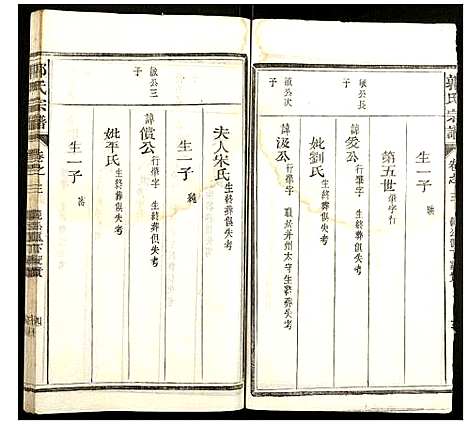 郭氏宗譜
卷之三
生一子
第五世 華字行
敏公長子
諱愛公 行華字 生終葬俱失考
妣劉氏 生終葬俱失考
敏公次子
諱汲公 行華字 職於并州太守 生終葬俱失考
夫人宋氏 生終葬俱失考
生一子
敏公三子
諱償公 行華字 生終葬俱失考
妣平氏 生終葬俱失考
生一子
郭氏宗譜
卷之三